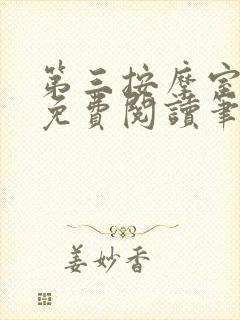 第三按摩室
免費閱讀筆
姜妙香